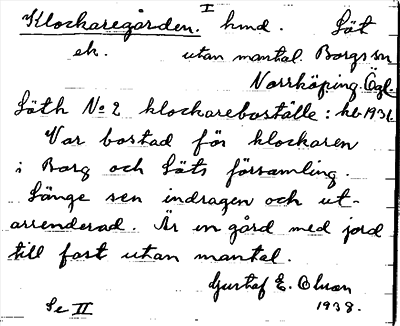 I
Klockaregården. hmd. Löt
ek. utan mantal. Borgs sn
Norrköping. Ögl.
Löth No 2 klockareboställe: kb 1931
Var bostad för klockaren
i Borg och Löts församling.
Länge sen indragen och ut-
arrenderad. Är en gård med jord
till fast utan mantal.
Gustaf E. Olson
Se II 1938.